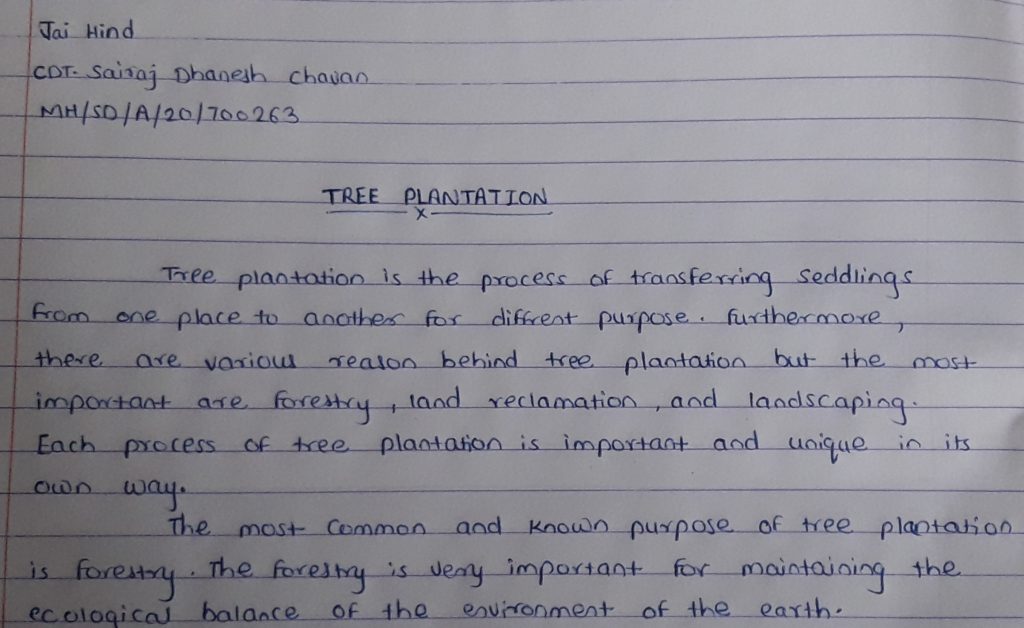 Jai Hind
CDT. Sairaj Dhanesh Chavan
MH/SD/A/20/700263
TREE PLANTATION
x
Tree plantation is the process of transferring seddlings
from one place to another for diffrent purpose. furthermore,
there are various reason behind tree plantation but the most
important are forestry, land reclamation, and landscaping.
Each process of tree plantation is important and unique in its
own way.
The most common and known purpose of tree plantation
is forestry. The forestry is very important for maintaining the
ecological balance of the environment of the earth.